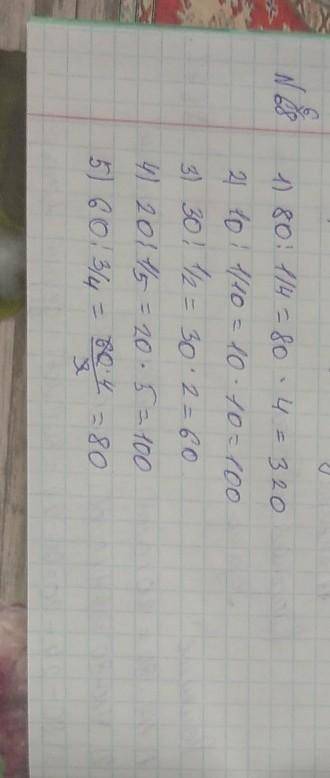 N 68
1) 80 : 1/4 = 80 · 4 = 320
2) 10 : 1/10 = 10 · 10 = 100
3) 30 : 1/2 = 30 · 2 = 60
4) 20 : 1/5 = 20 · 5 = 100
5) 60 : 3/4 = 60·4/3 = 80